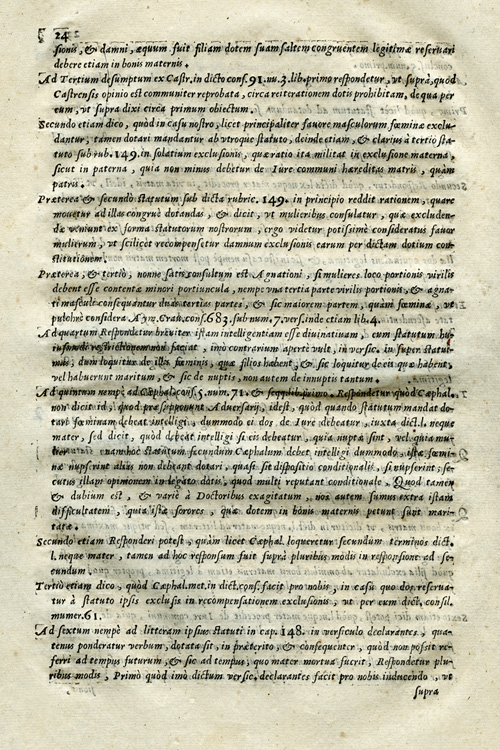 24
sionis, & damni, æquum fuit filiam dotem suam saltem congruentem legitimæ reservari
debere etiam in bonis maternis.
Ad Tertium desumptum ex Castr. in dicto cons. 91. nu. 3. lib. primo respondetur, vt supra, quòd
Castrensis opinio est communiter reprobata, circa reiterationem dotis prohibitam, de qua per
eum, vt supra dixi circa primum obiectum.
Secundo etiam dico, quòd in casu nostro, licet principaliter fauore masculorum fœminæ exclu-
dantur, tamen dotari mandantur ab vtroque statuto, deinde etiam, & clarius à tertio sta-
tuto sub rub. 149. in solatium exclusionis, quæ ratio ita militat in exclusione materna,
sicut in paterna, quia non minus debetur de Iure communi hæreditas matris, quàm
patris.
Præterea & secundo statutum sub dicta rubric. 149. in principio reddit rationem, quare
mouetur ad illas congruè dotandas, & dicit, vt mulieribus consulatur, quæ excluden-
dæ veniunt ex forma statutorum nostrorum, ergo videtur potissimè consideratus fauor
mulierum, vt scilicet recompensetur damnum exclusionis earum per dictam dotium con-
stitutionem.
Præterea, & tertiò, nonne satis consultum est Agnationi, si mulieres loco portionis virilis
debent esse contentæ minori portiuncula, nempe vna tertia parte virilis portionis, & agna-
ti masculi consequantur duas tertias partes, & sic maiorem partem, quàm fœminæ, vt
pulchrè considera Aym. Crau. cons. 683. sub num. 7. vers. inde etiam lib. 4.
Ad quartum Respondetur breuiter istam intelligentiam esse diuinatiuam, cum statutum hu-
iusmodi restrictionem non faciat, imò contrarium apertè vult, in versic. in super statui-
mus; dum loquitur de illis fœminis, quæ filios habent, & sic loquitur de eis quæ habent,
vel habuerunt maritum, & sic de nuptis, non autem de innuptis tantum.
Ad quintum nempè ad Cæphal. cons. 5. num. 71. & seqq. lib. primo. Respondetur quòd Cæphal.
non dicit id, quod præsupponunt Aduersarij, idest, quòd quando statutum mandat do-
tari fœminam debeat intelligi, dummodo ei dos de Iure debeatur, iuxta dict. l. neque
mater, sed dicit, quòd debeat intelligi si eis debeatur, quia nuptæ sint, vel quia mu-
enamhoc statutum secundum Cæphalum debet intelligi dummodo, istæ fœmi-
næ nupserint alius non debeant dotari, quasi sit dispositio conditionalis, si nupserint; se-
cutus illam opinionem in legato dotis, quod multi reputant conditionale, Quod tamen
& dubium est, & variè à Doctoribus exagitatum, nos autem sumus extra istam
difficultatem, quia istæ sorores, quæ dotem in bonis maternis petunt sunt mari-
tatæ.
Secundo etiam Responderi potest, quàm licet Cæphal. loqueretur secundum terminos dict.
l. neque mater, tamen ad hoc responsum fuit suprà pluribis modis in responsione ad se-
eundum.
Tertiò etiam dico, quòd Cæphal. met. in dict. cons. facit pro nobis, in casu quo dos reserua-
tur à statuto ipsis exclusis in recompensationem exclusionis, vt per eum dict. consil.
numer. 61.
Ad sextum nempè ad litteram ipsius statuti in cap. 148. in versiculo declarantes, qua-
tenus ponderatur verbum, dotata sit, in præterito, & consequenter, quòd non possit re-
ferri ad tempus futurum, & sic ad tempus, quo mater mortua fuerit, Respondetur plu-
ribus modis, Primò quòd imò dictum versic. declarantes facit pro nobis inducendo, vt
supra